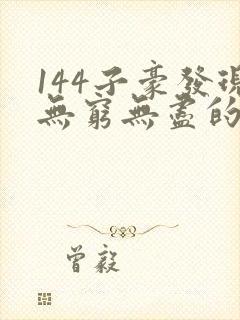 144子豪發現
無窮無盡的
曾毅